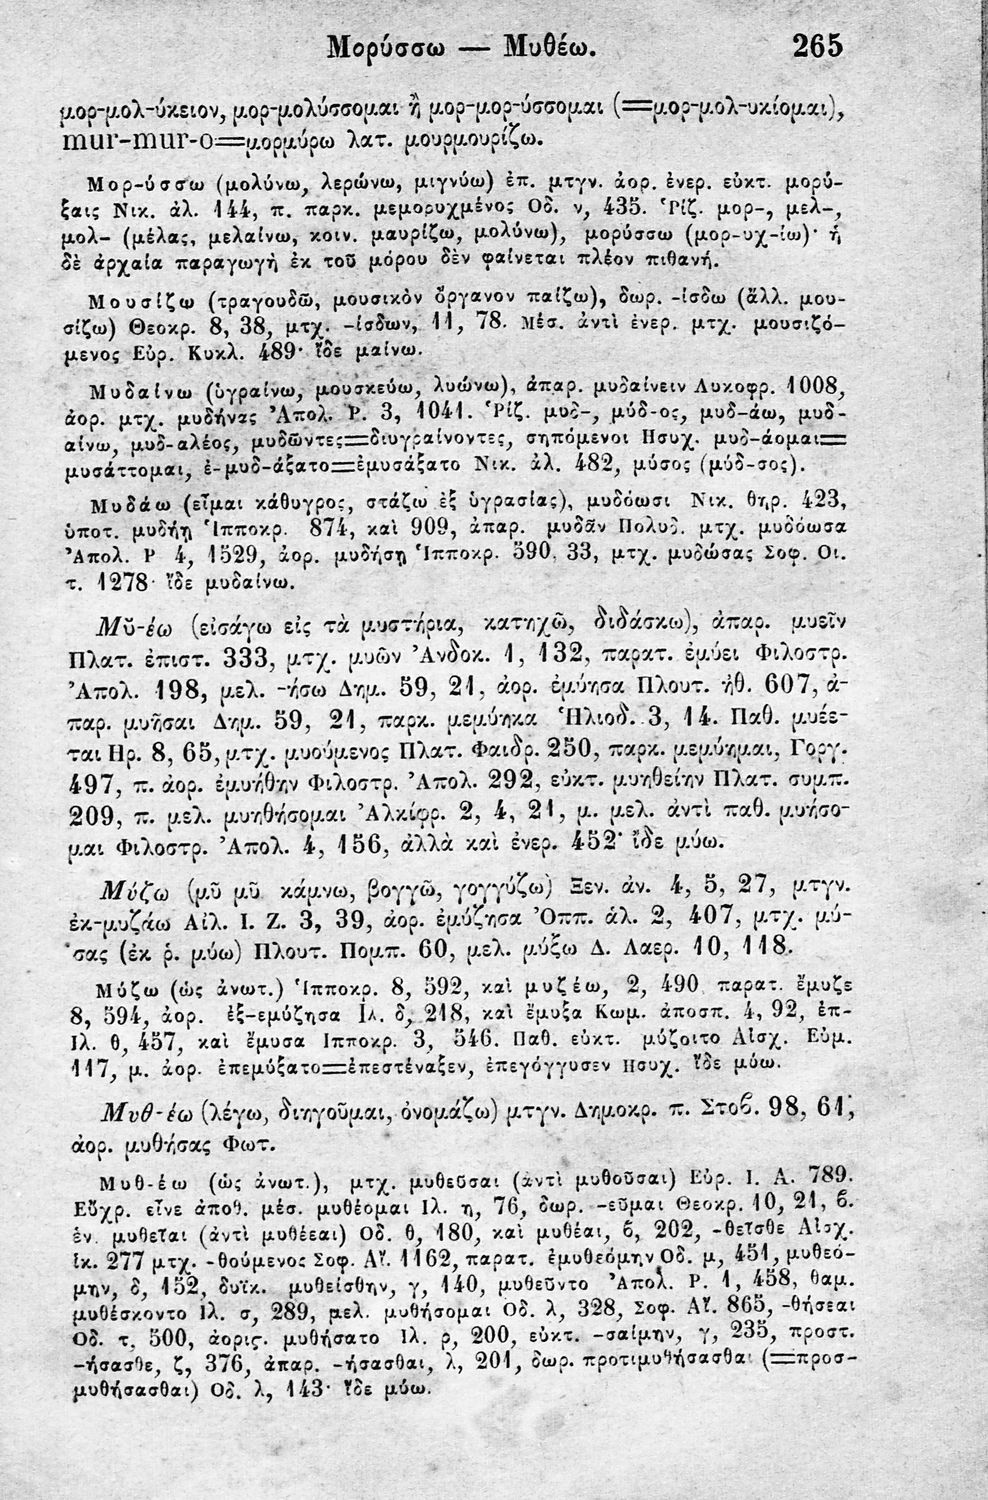 Μορύσσω — Μυθέω. 265
μορ-μολ-ύκειον, μορ-μολύσσομαι ἢ μορ-μορ-ύσσομαι (=μορ-μολ-υκίομαι),
mur-mur-o=μορμύρω λατ. μουρμουρίζω.
Μορ-ύσσω (μολύνω, λερώνω, μιγνύω) ἐπ. μτγν. ἀορ. ἐνερ. εὐκτ. μορύ-
ξαις Νικ. ἀλ. 144, π. παρκ. μεμορυχμένος Οδ. ν, 435. Ῥίζ. μορ-, μελ-,
μολ- (μέλας, μελαίνω, κοιν. μαυρίζω, μολύνω), μορύσσω (μορ-υχ-ίω)· ἡ
δὲ ἀρχαία παραγωγὴ ἐκ τοῦ μόρου δὲν φαίνεται πλέον πιθανή.
Μουσίζω (τραγουδῶ, μουσικὸν ὄργανον παίζω), δωρ. -ίσδω (ἄλλ. μου-
σίζω) Θεοκρ. 8, 38, μτχ. -ίσδων, 11, 78. Μέσ. ἀντὶ ἐνερ. μτχ. μουσιζό-
μενος Εὐρ. Κυκλ. 489· ἴδε μαίνω.
Μυδαίνω (ὑγραίνω, μουσκεύω, λυώνω), ἀπαρ. μυδαίνειν Λυκοφρ. 1008,
ἀορ. μτχ. μυδήνας Ἀπολ. Ρ. 3, 1041. Ῥίζ. μυδ-, μύδ-ος, μυδ-άω, μυδ-
αίνω, μυδ-αλέος, μυδῶντες=διυγραίνοντες, σηπόμενοι Ησυχ. μυδ-άομαι=
μυσάττομαι, ἐ-μυδ-άξατο=ἐμυσάξατο Νικ. ἀλ. 482, μύσος (μύδ-σος).
Μυδάω (εἶμαι κάθυγρος, στάζω ἐξ ὑγρασίας), μυδόωσι Νικ. θηρ. 423,
ὑποτ. μυδήῃ Ἱπποκρ. 874, καὶ 909, ἀπαρ. μυδᾶν Πολυδ. μτχ. μυδόωσα
Ἀπολ. Ρ 4, 1529, ἀορ. μυδήσῃ Ἱπποκρ. 590, 33, μτχ. μυδώσας Σοφ. Οι.
τ. 1278· ἴδε μυδαίνω.
Μῠ-έω (εἰσάγω εἰς τὰ μυστήρια, κατηχῶ, διδάσκω), ἀπαρ. μυεῖν
Πλατ. ἐπιστ. 333, μτχ. μυῶν Ἀνδοκ. 1, 132, παρατ. ἐμύει Φιλοστρ.
Ἀπολ. 198, μελ. -ήσω Δημ. 59, 21, ἀορ. ἐμύησα Πλουτ. ἠθ. 607, ἀ-
παρ. μυῆσαι Δημ. 59, 21, παρκ. μεμύηκα Ἡλιοδ. 3, 14. Παθ. μυέε-
ται Ηρ. 8, 65, μτχ. μυούμενος Πλατ. Φαιδρ. 250, παρκ. μεμύημαι, Γοργ.
497, π. ἀορ. ἐμυήθην Φιλοστρ. Ἀπολ. 292, εὐκτ. μυηθείην Πλατ. συμπ.
209, π. μελ. μυηθήσομαι Ἀλκίφρ. 2, 4, 21, μ. μελ. ἀντὶ παθ. μυήσο-
μαι Φιλοστρ. Ἀπολ. 4, 156, ἀλλὰ καὶ ἐνερ. 452· ἴδε μύω.
Μύζω (μῦ μῦ κάμνω, βογγῶ, γογγύζω) Ξεν. ἀν. 4, 5, 27, μτγν.
ἐκ-μυζάω Αἰλ. Ι. Ζ. 3, 39, ἀορ. ἐμύζησα Ὀππ. ἁλ. 2, 407, μτχ. μύ-
σας (ἐκ ῥ. μύω) Πλουτ. Πομπ. 60, μελ. μύξω Δ. Λαερ. 10, 118.
Μύζω (ὡς ἀνωτ.) Ἱπποκρ. 8, 592, καὶ μυζέω, 2, 490 παρατ. ἔμυζε
8, 594, ἀορ. ἐξ-εμύζησα Ἰλ. δ, 218, καὶ ἔμυξα Κωμ. ἀποσπ. 4, 92, ἐπ-
Ιλ. θ, 457, καὶ ἔμυσα Ιπποκρ. 3, 546. Παθ. εὐκτ. μύζοιτο Αἰσχ. Εὐμ.
117, μ. ἀορ. ἐπεμύξατο=ἐπεστέναξεν, ἐπεγόγγυσεν Ησυχ. ἴδε μύω.
Μυθ-έω (λέγω, διηγοῦμαι, ὀνομάζω) μτγν. Δημοκρ. π. Στοβ. 98, 61,
ἀορ. μυθήσας Φωτ.
Μυθ-έω (ὡς ἀνωτ.), μτχ. μυθεῦσαι (ἀντὶ μυθοῦσαι) Εὐρ. Ι. Α. 789.
Εὔχρ. εἶνε ἀποθ. μέσ. μυθέομαι Ιλ. η, 76, δωρ. -εῦμαι Θεοκρ. 10, 21, β.
ἑν. μυθεῖαι (ἀντὶ μυθέεαι) Οδ. θ, 180, καὶ μυθέαι, β, 202, -θεῖσθε Αἰσχ.
ἱκ. 277 μτχ. -θούμενος Σοφ. Αἴ. 1162, παρατ. ἐμυθεόμην Οδ. μ, 451, μυθεό-
μην, δ, 152, δυϊκ. μυθείσθην, γ, 140, μυθεῦντο Ἀπολ. Ρ. 1, 458, θαμ.
μυθέσκοντο Ιλ. σ, 289, μελ. μυθήσομαι Οδ. λ, 328, Σοφ. Αἴ. 865, -θήσεαι
Οδ. τ, 500, ἀορις. μυθήσατο Ιλ. ρ, 200, εὐκτ. -σαίμην, γ, 235, προστ.
-ήσασθε, ζ, 376, ἀπαρ. -ήσασθαι, λ, 201, δωρ. προτιμυθήσασθαι (=προσ-
μυθήσασθαι) Οδ. λ, 143· ἴδε μύω.